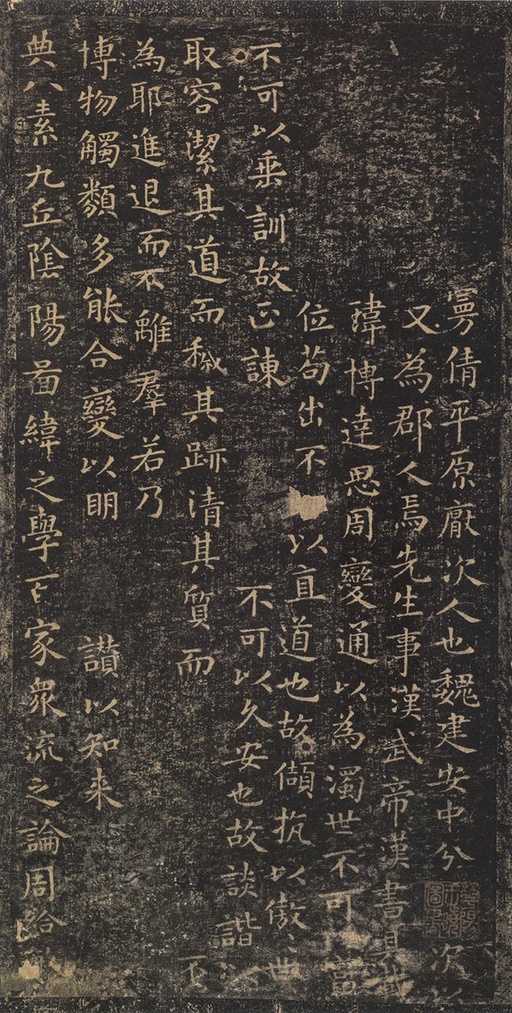 曼倩平原厭次人也魏建安中分次以
又為郡人焉先生事漢武帝漢書具載
瑋博達思周變通以為濁世不可以富
位苟出不以直道也故抗以傲世
不可以垂訓故正諫不可以久安也故談諧以
取容潔其道而穢其跡清其質而
為耶進退而不離羣若乃
博物觸類多能合變以明讚以知来
典八素九丘陰陽啚緯之學百家衆流之論周給敏